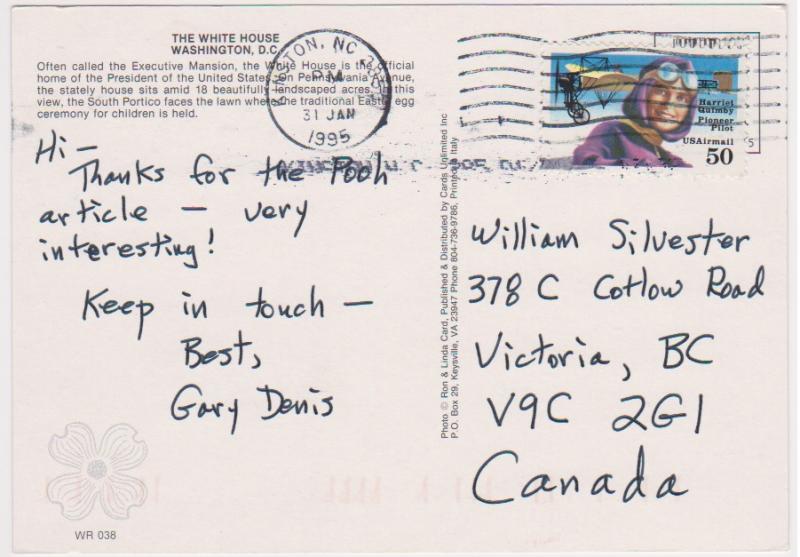 THE WHITE HOUSE
WASHINGTON, D.C.
Often called the Executive Mansion, the White House is the official
home of the President of the United States. On Pennsylvania Avenue,
the stately house sits amid 18 beautifully landscaped acres. In this
view, the South Portico faces the lawn where the traditional Easter egg
ceremony for children is held.
NC
PM
31 JAN
1995
Harriet
Quimby
Pioneer
Pilot
USAirmail
50
Hi —
Thanks for the Pooh
article — very
interesting!
Keep in touch —
Best,
Gary Denis
Photo © Ron & Linda Card, Published & Distributed by Cards Unlimited Inc
P.O. Box 29, Keysville, VA 23947 Phone 804-736-9786, Printed in Italy
William Silvester
378 C Cotlow Road
Victoria, BC
V9C 2G1
Canada
WR 038